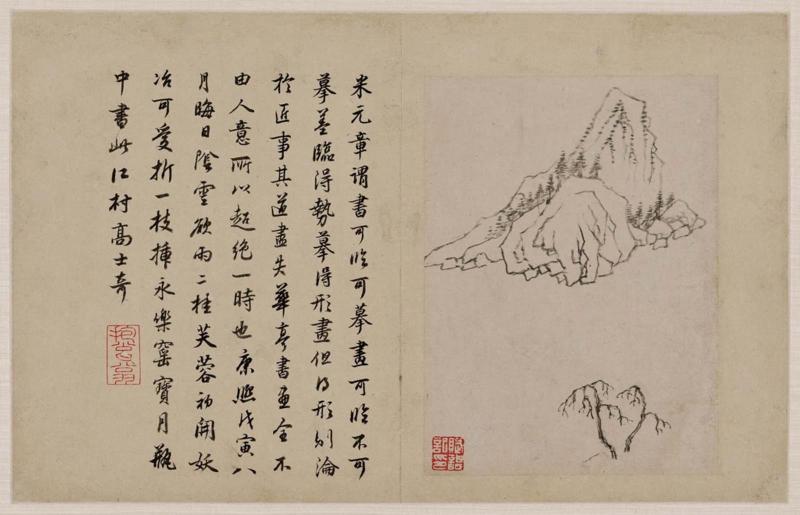 米元章謂書可臨可摹畫可臨不可
摹蓋臨得勢摹得形畫但得形則淪
於匠事其道盡失華亭書畫全不
由人意所以超絕一時也康熙戊寅八
月晦日陰雲欲雨二桂芙蓉初開妖
冶可愛折一枝插永樂窰寶月瓶
中書此江村高士奇